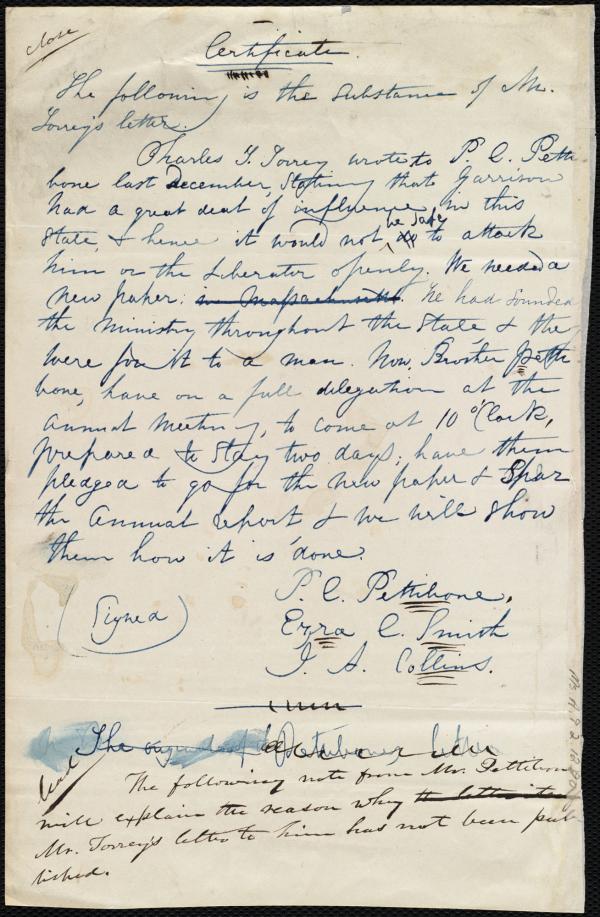 close
Certificate.
The following is the substance of Mr.
Torrey's letter.
Charles T. Torrey wrote to P. C. Petti
bone last December, stating that Garrison
had a great deal of influence in this
State, & hence it would not be safe to attack
him or the Liberator openly. We needed a
new paper; in Massachusetts. He had sounded
the ministry throughout the State & they
were for it to a man. Now, Brother Petti
bone, have on a full delegation at the
Annual Meeting, to come at 10 o'Clock,
prepared to stay two days; have them
pledged to go for the new paper &
the Annual report & we will show
them how it is done.
P. C. Pettibone,
(Signed)
Ezra C. Smith
J. A. Collins.
The of Pettibone's letter
lead
The following note from Mr. Pettibone
will explain the reason why
Mr. Torrey's letter to him has not been pub
lished.